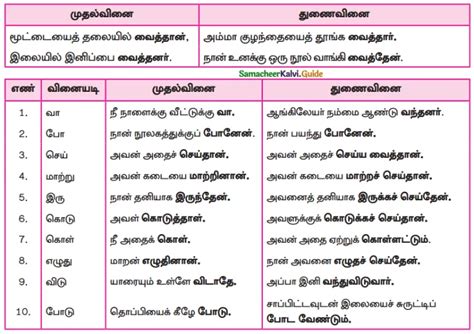 முதல்வினை துணைவினை
மூட்டையைத் தலையில் வைத்தான். அம்மா குழந்தையைத் தூங்க வைத்தார்.
இலையில் இனிப்பை வைத்தனர். நான் உனக்கு ஒரு நூல் வாங்கி வைத்தேன்.
SamacheerKalvi.Guide
எண் வினையடி முதல்வினை துணைவினை
1. வா நீ நாளைக்கு வீட்டுக்கு வா. ஆங்கிலேயர் நம்மை ஆண்டு வந்தனர்.
2. போ நான் நூலகத்துக்குப் போனேன். நான் பயந்து போனேன்.
3. செய் அவன் அதைச் செய்தான். அவன் அதைச் செய்ய வைத்தான்.
4. மாற்று அவன் கடையை மாற்றினான். அவன் கடையை மாற்றச் செய்தான்.
5. இரு நான் தனியாக இருந்தேன். அவனைத் தனியாக இருக்கச் செய்தேன்.
6. கொடு அவள் கொடுத்தாள். அவளுக்குக் கொடுக்கச் செய்தான்.
7. கொள் நீ அதைக் கொள். அவன் அதை ஏற்றுக் கொள்ளட்டும்.
8. எழுது மாறன் எழுதினான். நான் அவனை எழுதச் செய்தேன்.
9. விடு யாரையும் உள்ளே விடாதே. அப்பா இனி வந்துவிடுவார்.
10. போடு தொப்பியைக் கீழே போடு. சாப்பிட்டவுடன் இலையைச் சுருட்டிப்
போட வேண்டும்.